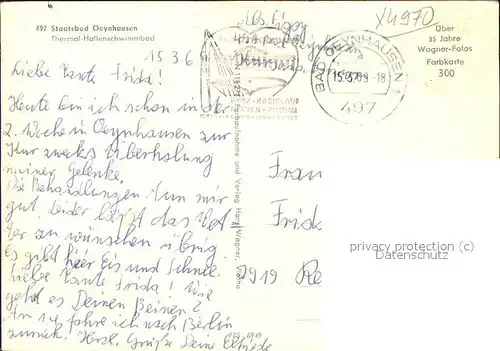 497 Staatsbad Oeynhausen
Thermal-Hallenschwimmbad
15.3.6
Liebe Tante Frida!
Heute bin ich schon in der
2. Woche in Oeynhausen zur
Kur zwecks Überholung
meiner Gelenke.
Die Behandlungen tun mir
gut. Leider läßt das Wet
ter zu wünschen übrig
Es gibt hier Eis und Schnee.
Liebe Tante Frida! Wie
geht es Deinen Beinen?
An 14 fahre ich nach Berlin
zurück. Herzl. Grüße Deine Elfriede
Über
35 Jahre
Wagner-Fotos
Farbkarte
300
X4970
BAD OEYNHAUSEN 1
-18
497
und Verlag Harry Wagner, Vlotho
Frau
Frida
2919 Re
privacy protection (c)
Datenschutz